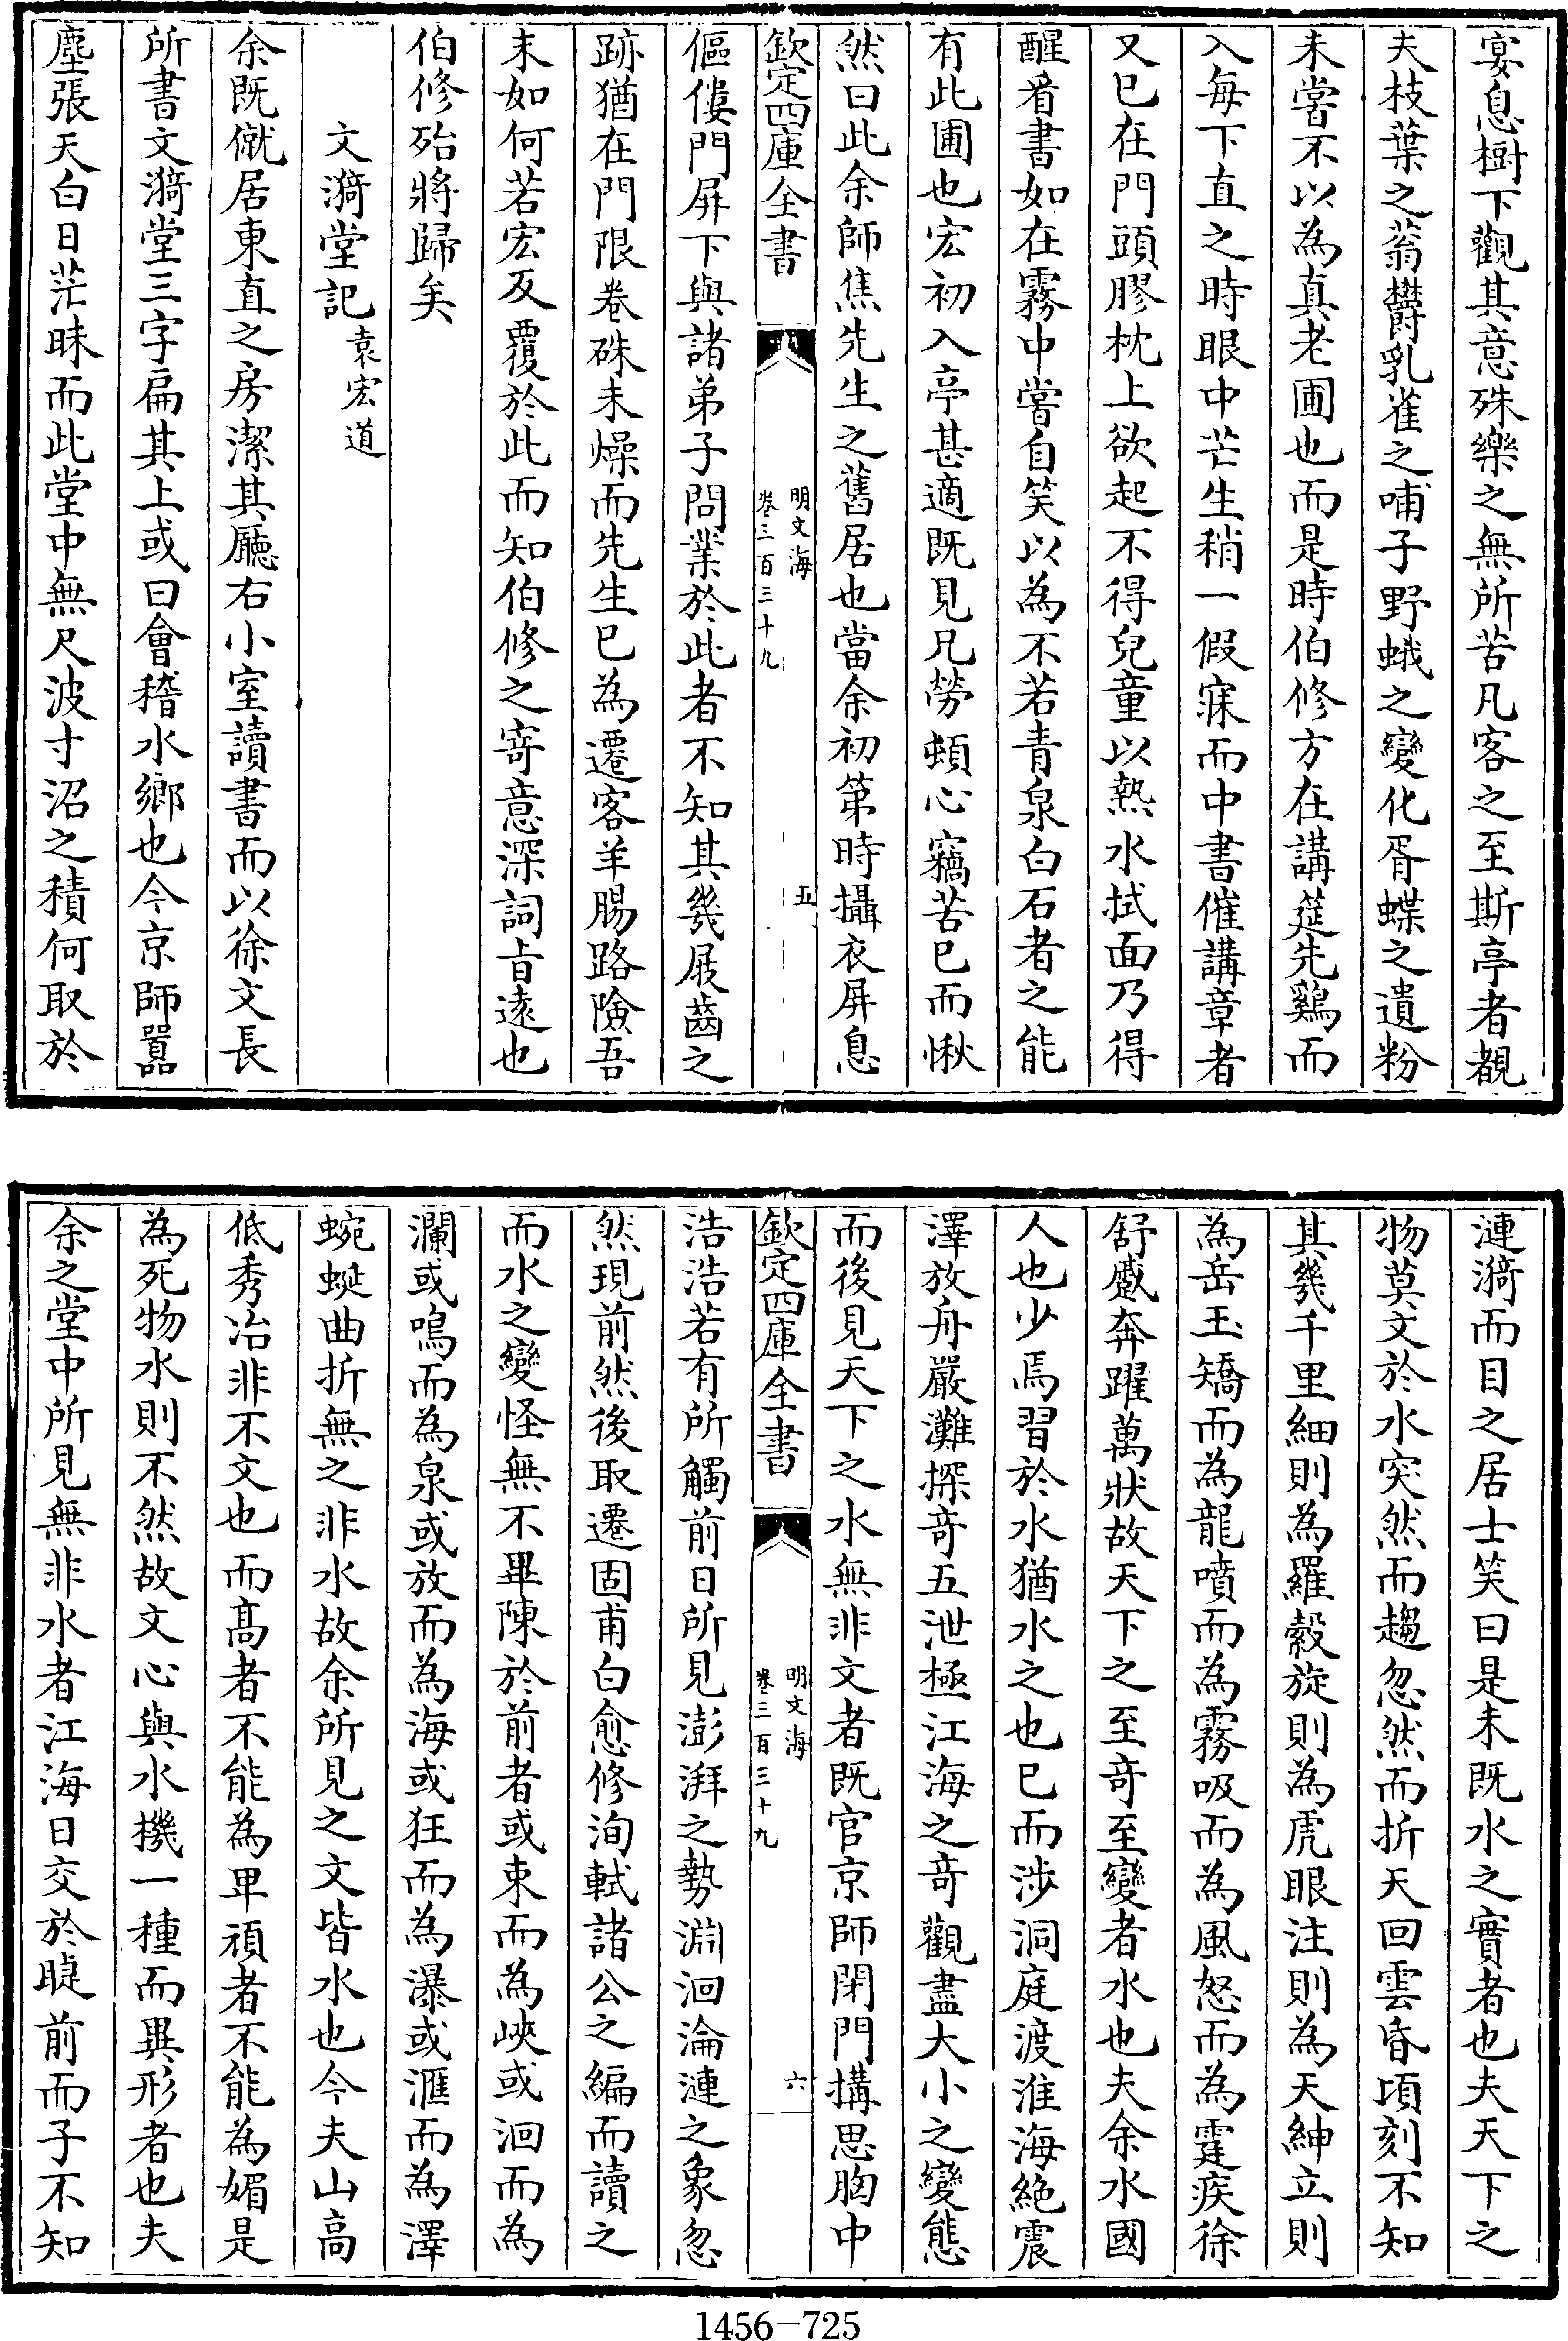 宴息樹下觀其意殊樂之無所苦凡客之至斯亭者覩
夫枝葉之蓊欝乳雀之哺子野蛾之變化胥蝶之遺粉
未嘗不以為真老圃也而是時伯修方在講筵先鷄而
入每下直之時眼中芒生稍一假寐而中書催講章者
又已在門頭膠枕上欲起不得兒童以熱水拭面乃得
醒看書如在霧中嘗自笑以為不若青泉白石者之能
有此圃也宏初入亭甚適既見兄勞頓心竊苦已而愀
然曰此余師焦先生之舊居也當余初第時攝衣屏息
欽定四庫全書
明文海
卷三百三十九
五
傴僂門屏下與諸弟子問業於此者不知其幾屐齒之
跡猶在門限卷硃未燥而先生已為遷客羊腸路險吾
末如何若宏反覆於此而知伯修之寄意深詞旨遠也
伯修殆將歸矣
文漪堂記袁宏道
余既僦居東直之房潔其廳右小室讀書而以徐文長
所書文漪堂三字扁其上或曰會稽水鄉也今京師嚣
塵張天白日茫昧而此堂中無尺波寸沼之積何取於
漣漪而目之居士笑曰是未既水之實者也夫天下之
物莫文於水突然而趨忽然而折天回雲昏頃刻不知
其幾千里細則為羅縠旋則為虎眼注則為天紳立則
為岳玉矯而為龍噴而為霧吸而為風怒而為霆疾徐
舒蹙奔躍萬狀故天下之至奇至變者水也夫余水國
人也少焉習於水猶水之也已而涉洞庭渡淮海絶震
澤放舟嚴灘探奇五泄極江海之奇觀盡大小之變態
而後見天下之水無非文者既官京師閉門搆思胸中
欽定四庫全書
明文海
卷三百三十九
六
浩浩若有所觸前日所見澎湃之勢淵洄淪漣之象忽
然現前然後取遷固甫白愈修洵軾諸公之編而讀之
而水之變怪無不畢陳於前者或束而為峽或洄而為
瀾或鳴而為泉或放而為海或狂而為瀑或滙而為澤
蜿蜒曲折無之非水故余所見之文皆水也今夫山高
低秀冶非不文也而髙者不能為卑頑者不能為媚是
為死物水則不然故文心與水機一種而異形者也夫
余之堂中所見無非水者江海日交於睫前而子不知
1456-725